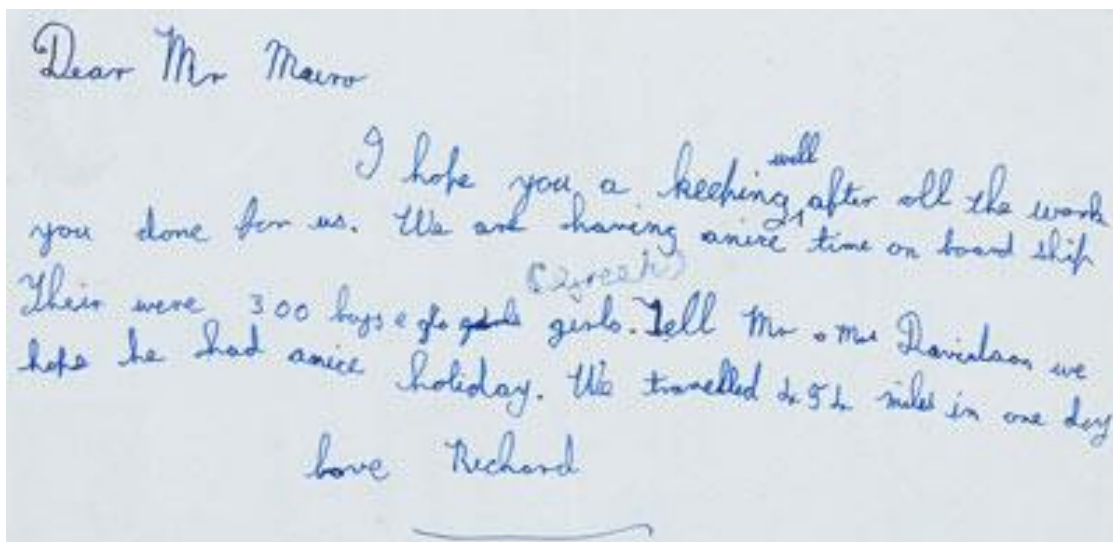 Dear Mr Mairo
I hope you a keeping well after all the work
you done for us. We are having anice time on board ship
Their were 300 boys & girls. Tell Mr & Mrs Davidson we
hope he had anice holiday. We travelled 454 miles in one day
love Richard